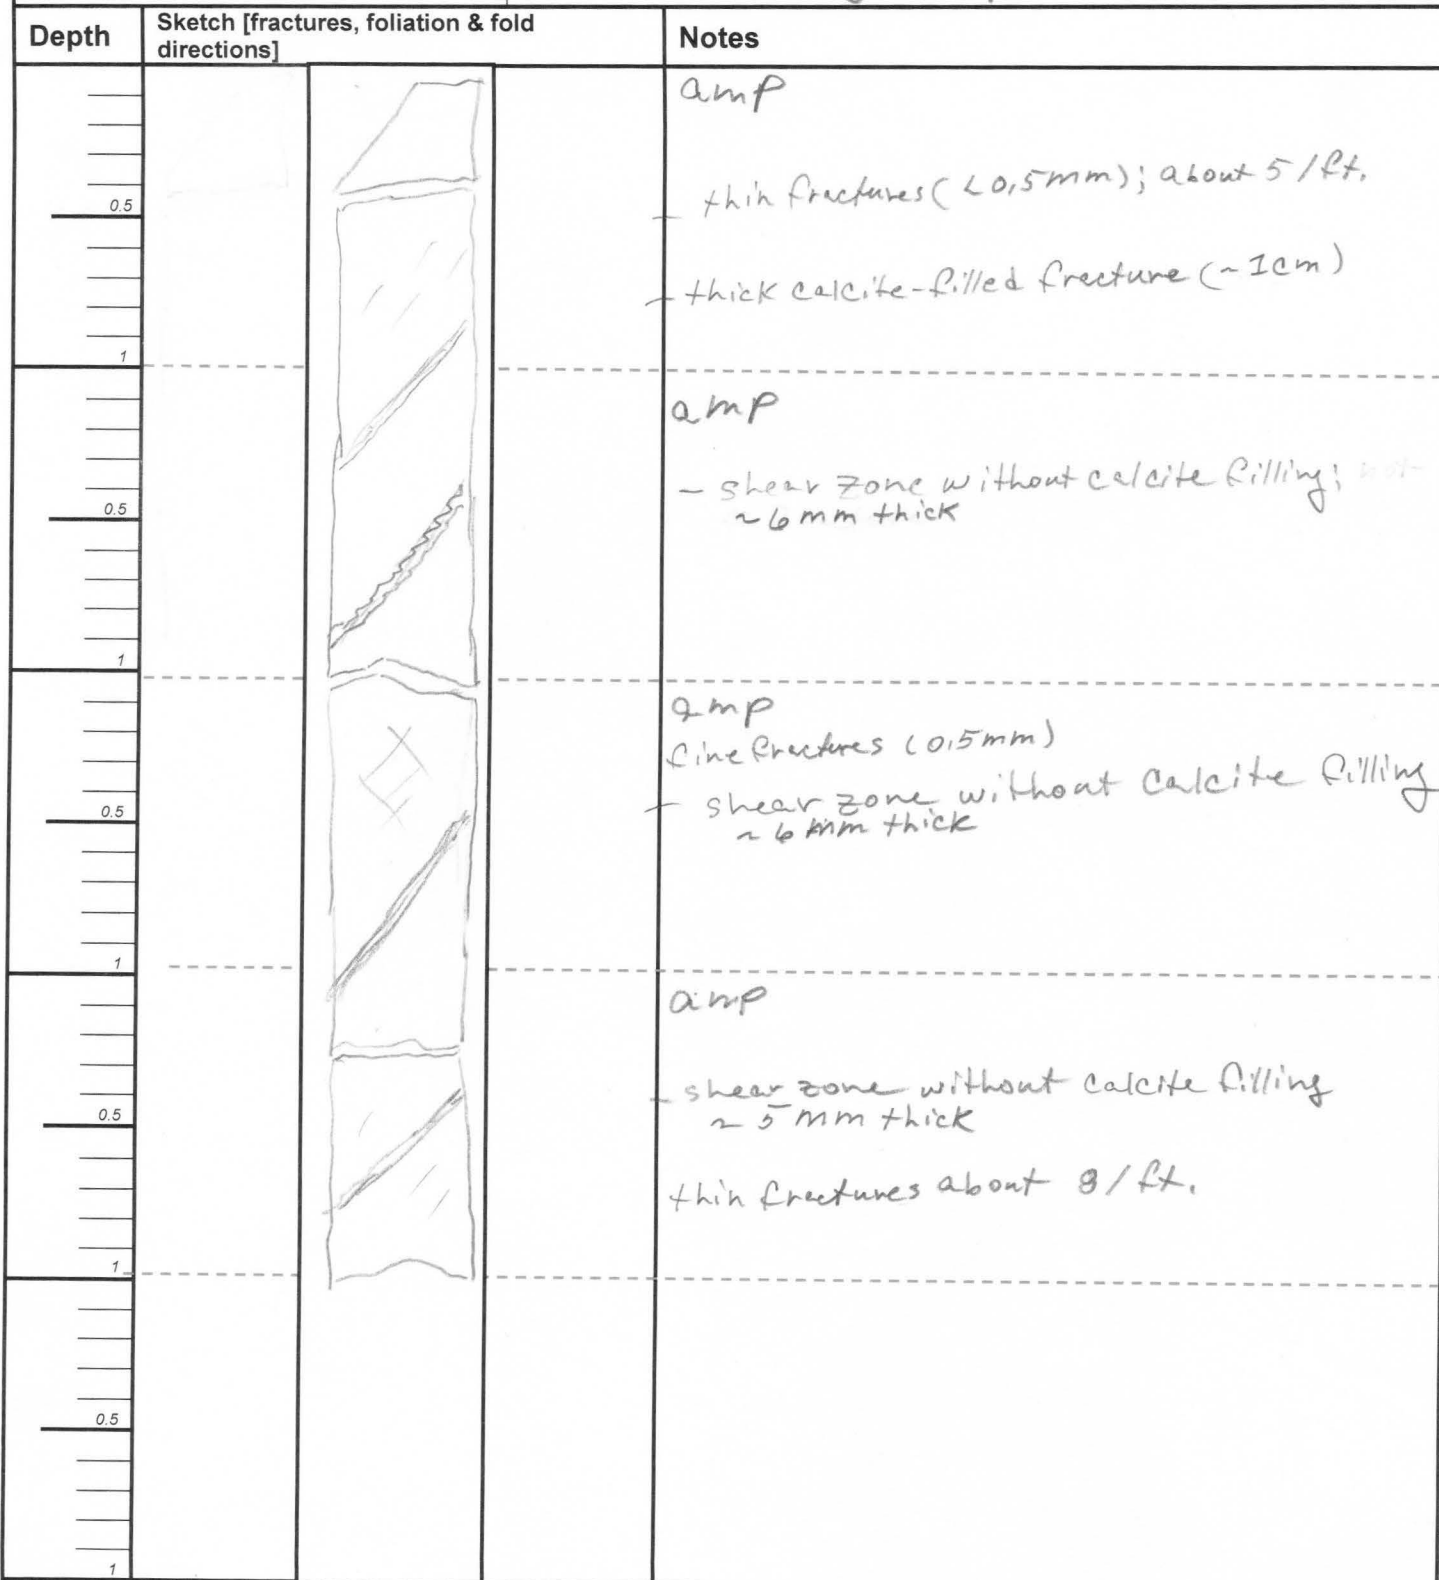 Depth
Sketch [fractures, foliation & fold
directions]
Notes
amp
0.5
thin fractures (<0.5mm); about 5/ft.
- thick calcite-filled fracture (~1cm)
1
amp
- shear zone without calcite filling;
0.5
~6mm thick
1
amp
fine fractures (0.5mm)
- shear zone without calcite filling
0.5
~6mm thick
1
amp
- shear zone without calcite filling
0.5
~5mm thick
thin fractures about 8/ft.
1
0.5
1